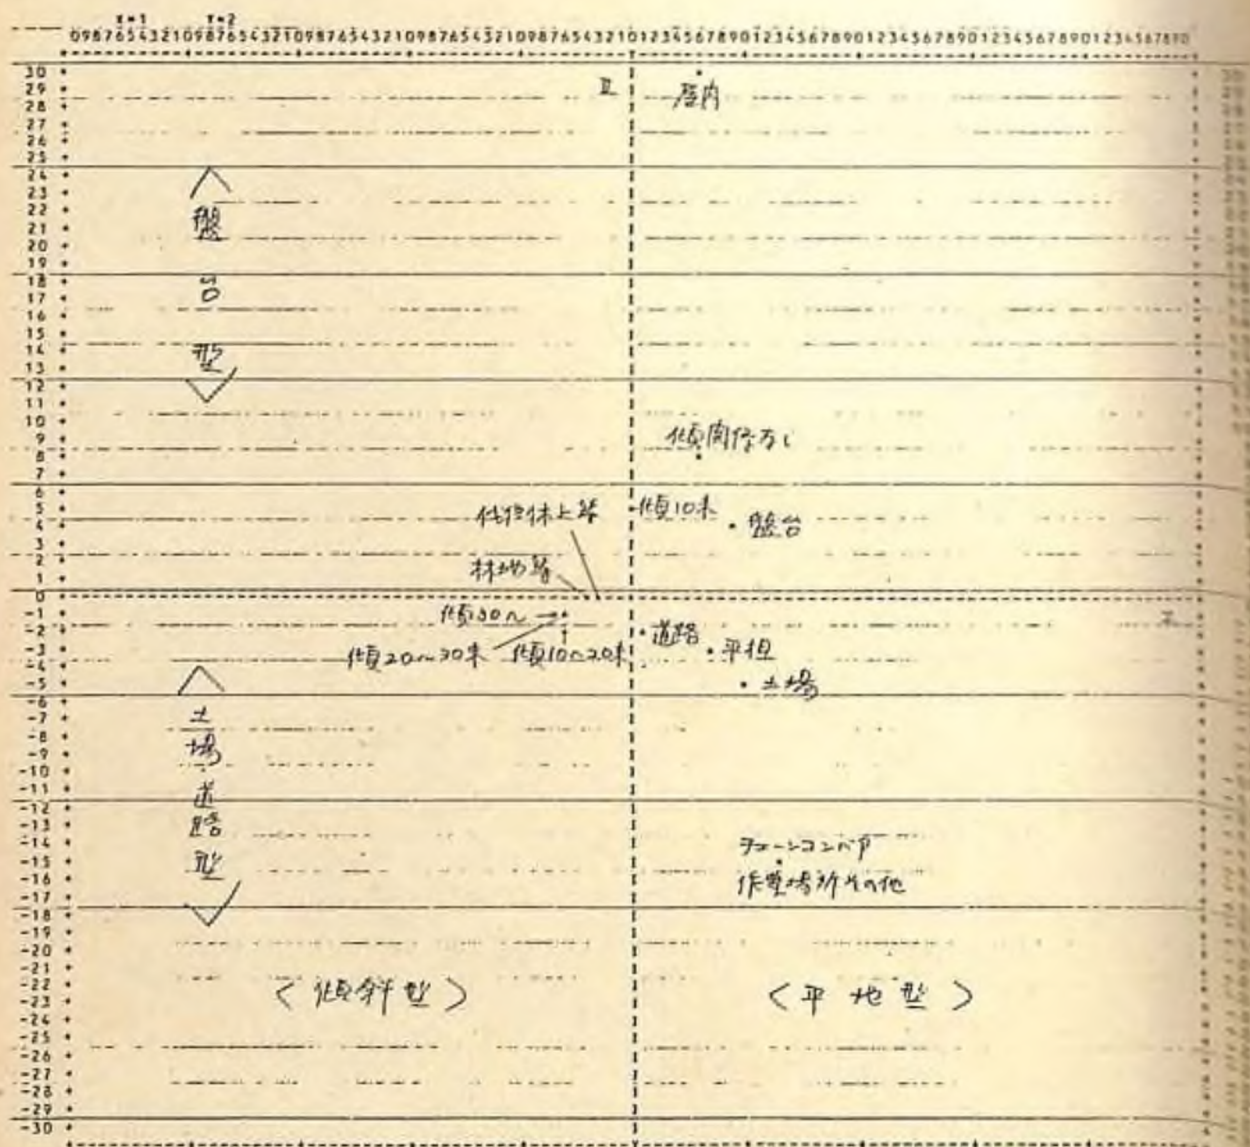 X=1 Y=2
09876543210987654321098765432109876543210987654321012345678901234567890123456789012345678901234567890
30
29
Ⅱ
屋内
28
27
26
25
24
23
22
21
20
19
18
17
16
15
14
13
12
11
10
9
8
7
6
5
4
3
2
1
0
-1
-2
-3
-4
-5
-6
-7
-8
-9
-10
-11
-12
-13
-14
-15
-16
-17
-18
-19
-20
-21
-22
-23
-24
-25
-26
-27
-28
-29
-30
<盤台型>
傾関係なし
傾10未
盤台
林地等
傾30~
傾20~30未
傾10~20未
道路
平坦
土場
<土場道路型>
チェーンコンベア
作業場所その他
<傾斜型>
<平地型>